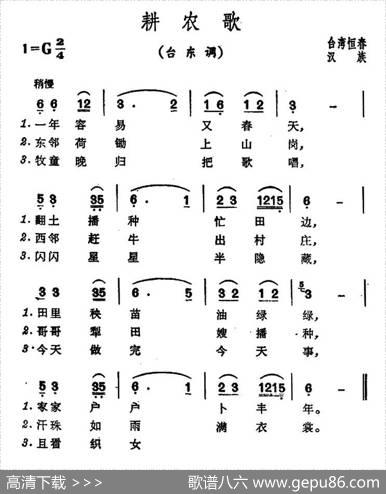 耕农歌
(台东调)
1=G 2/4
台湾恒春
汉族
稍慢
6 6 12 | 3· 2 | 1 6 1 2 | 3 - |
1.一年容易又春天,
2.东邻荷锄上山岗,
3.牧童晚归把歌唱,
5 3 35 | 6· 1 | 2 3 1215 | 6 - |
1.翻土播种忙田边,
2.西邻赶牛出村庄,
3.闪闪星星半隐藏,
3 3 35 | 6· 5 | 3 2 1 2 | 5 3 - |
1.田里秧苗油绿绿,
2.哥哥犁田嫂播种,
3.今天做完今天事,
5 3 35 | 6· 1 | 2 3 1215 | 6 - ‖
1.家家户户卜丰年。
2.汗珠如雨满衣裳。
3.且看织女
高清下载 >>>
歌谱八六 www.gepu86.com